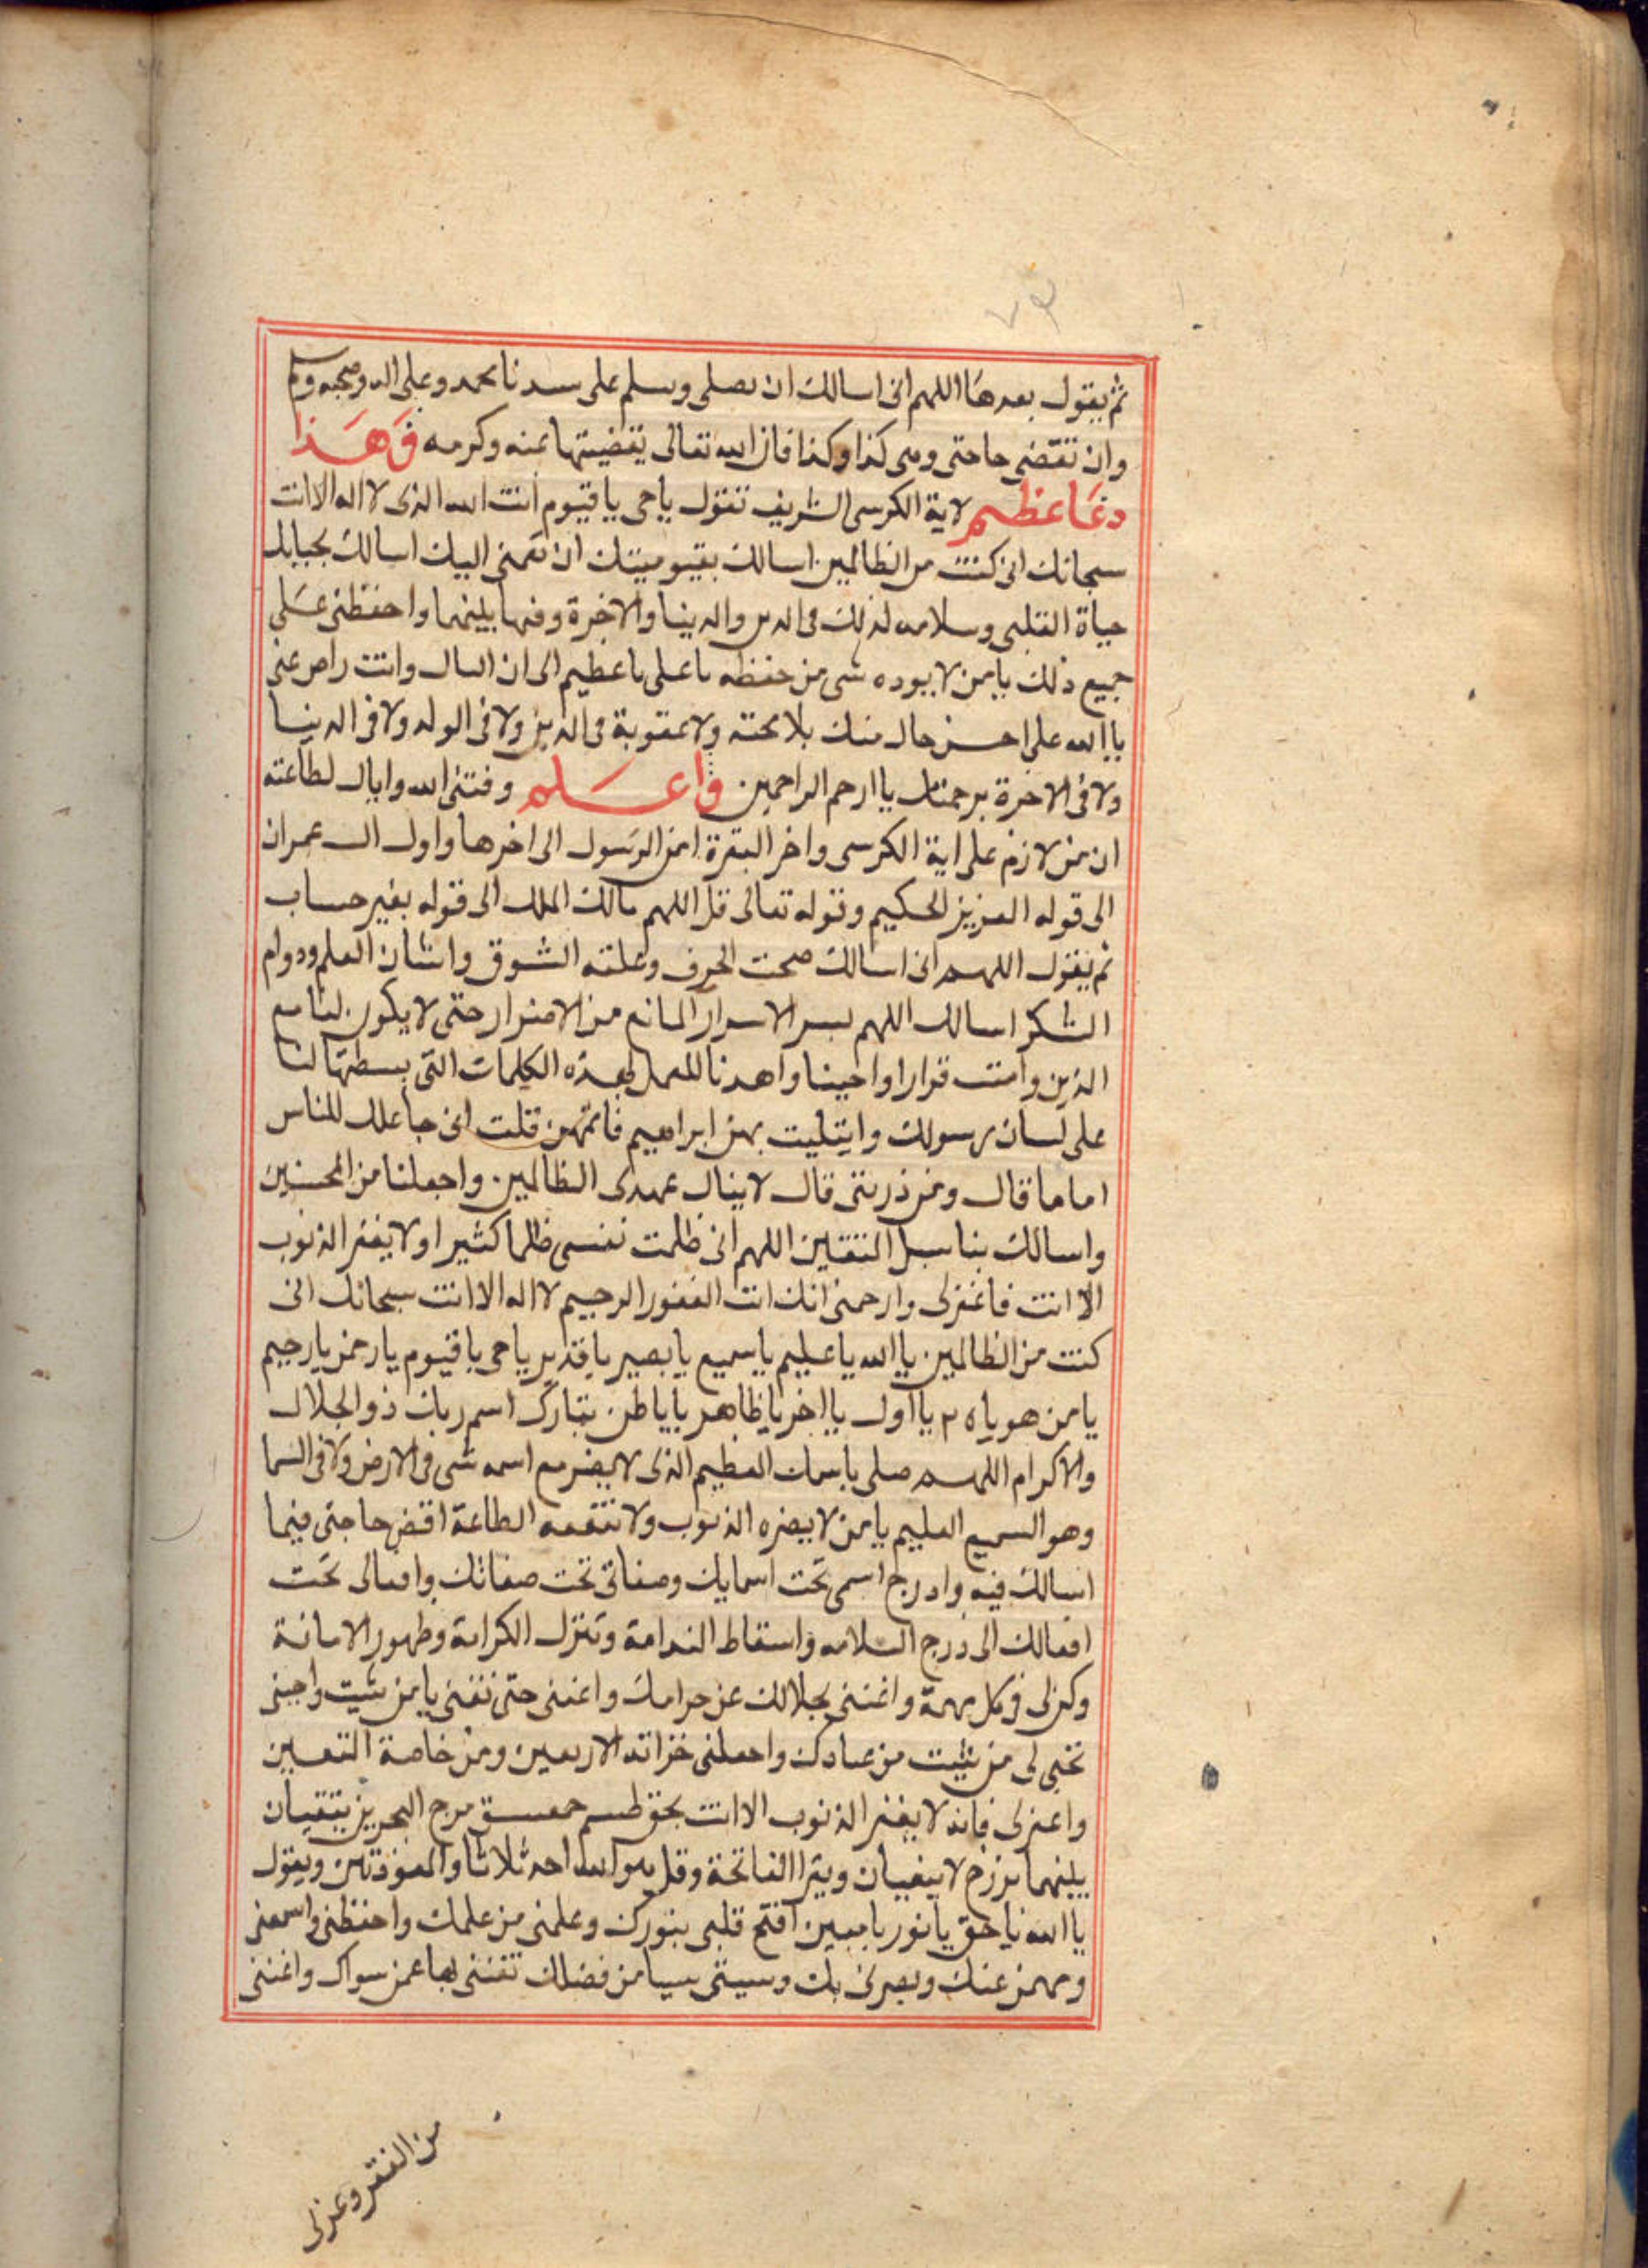 ٧٣
ثم يقول بعدها اللهم انى اسالك ان تصلى وسلم على سيدنا محمد وعلى اله وصحبه وسلم
وان تقضى حاجتى وهى كذا وكذا فان الله تعالى يقضيتها بمنه وكرمه وهذا
دعا عظيم لاية الكرسى الشريف تقول ياحى ياقيوم انت الله الذى لا اله الا انت
سبحانك انى كنت من الظالمين اسالك بقيوميتك ان اليك اسالك
حياة القلبى وسلامه لذلك فى الدين والدينا والاخرة وفيها بينهما واحفظنى على
جميع ذلك يامن لا يوده شى من حفظه ياعلى ياعظيم الى ان القاك وانت راض عنى
ياالله على احسن حال منك بلا محنه ولا عقوبة فى الدين ولا فى الولد ولا فى الدينا
ولا فى الاخرة برحمتك ياارحم الراحمين واعلم وفقنى الله واياك لطاعته
ان من لازم على اية الكرسى واخر البقرة امن الرسول الى اخرها واول ال عمران
الى قوله العزيز الحكيم وقوله تعالى قل اللهم مالك الملك الى قوله بغير حساب
ثم يقول اللهم انى اسالك صحت الخوف وغلته الشوق واتقان العلم ودوام
الشكر اسالك اللهم بسر الاسرار المانع من الاضرار حتى لا يكون لنا مع
الذين قرارا واحينا واهدنا للعمل بهذه الكلمات التى بسطتها لنا
على لسان رسولك وابتليت بهن ابراهيم فاتمهن قلت انى جاعلك للناس
اماما قال ومن ذريتى قال لا ينال عهدى الظالمين واجعلنا من المحسنين
واسالك بنا سبل المتقين اللهم انى ظلمت نفسى ظلما كثيرا ولا يغفر الذنوب
الا انت فاغفر لى وارحمنى انك انت الغفور الرحيم لا اله الا انت سبحانك انى
كنت من الظالمين ياالله ياعليم ياسميع يابصير ياقدير ياحى ياقيوم يارحمن يارحيم
يامن هو ياه ٣ يااول يااخر ياظاهر ياباطن تبارك اسم ربك ذو الجلال
والاكرام اللهم صلى باسمك العظيم الذى لا يضر مع اسمه شى فى الارض ولا فى السما
وهو السميع العليم يامن لا يضره الذنوب ولا تنفعه الطاعة اقض حاجتى فيما
اسالك فيه وادرج اسمى تحت اسمايك وصفاتى تحت صفاتك وافعالى تحت
افعالك الى درج السلامه واسقاط الندامة وتنزل الكرامة وظهور الامانة
وكن لى فى كل مهمة واغننى بحلالك عن حرامك واغننى حتى تغنى يامن شيت واحينى
تحيى لى من شيت من عبادك واجعلنى خزانة الاربعين ومن خاصة المتقين
واغفر لى فانه لا يغفر الذنوب الا انت بحق طسم حمعسق مرج البحرين يلتقيان
بينهما برزخ لا يبغيان ويقرا الفاتحة وقل هو الله احد ثلاثا والمعوذتين ويقول
ياالله ياحق يانور يامبين افتح قلبى بنورك وعلمنى من علمك واحفظنى واسمعنى
وفهمنى عنك وبصرنى بك من فضلك تغننى بها عمن سواك واغننى
من الفقر وعز لى